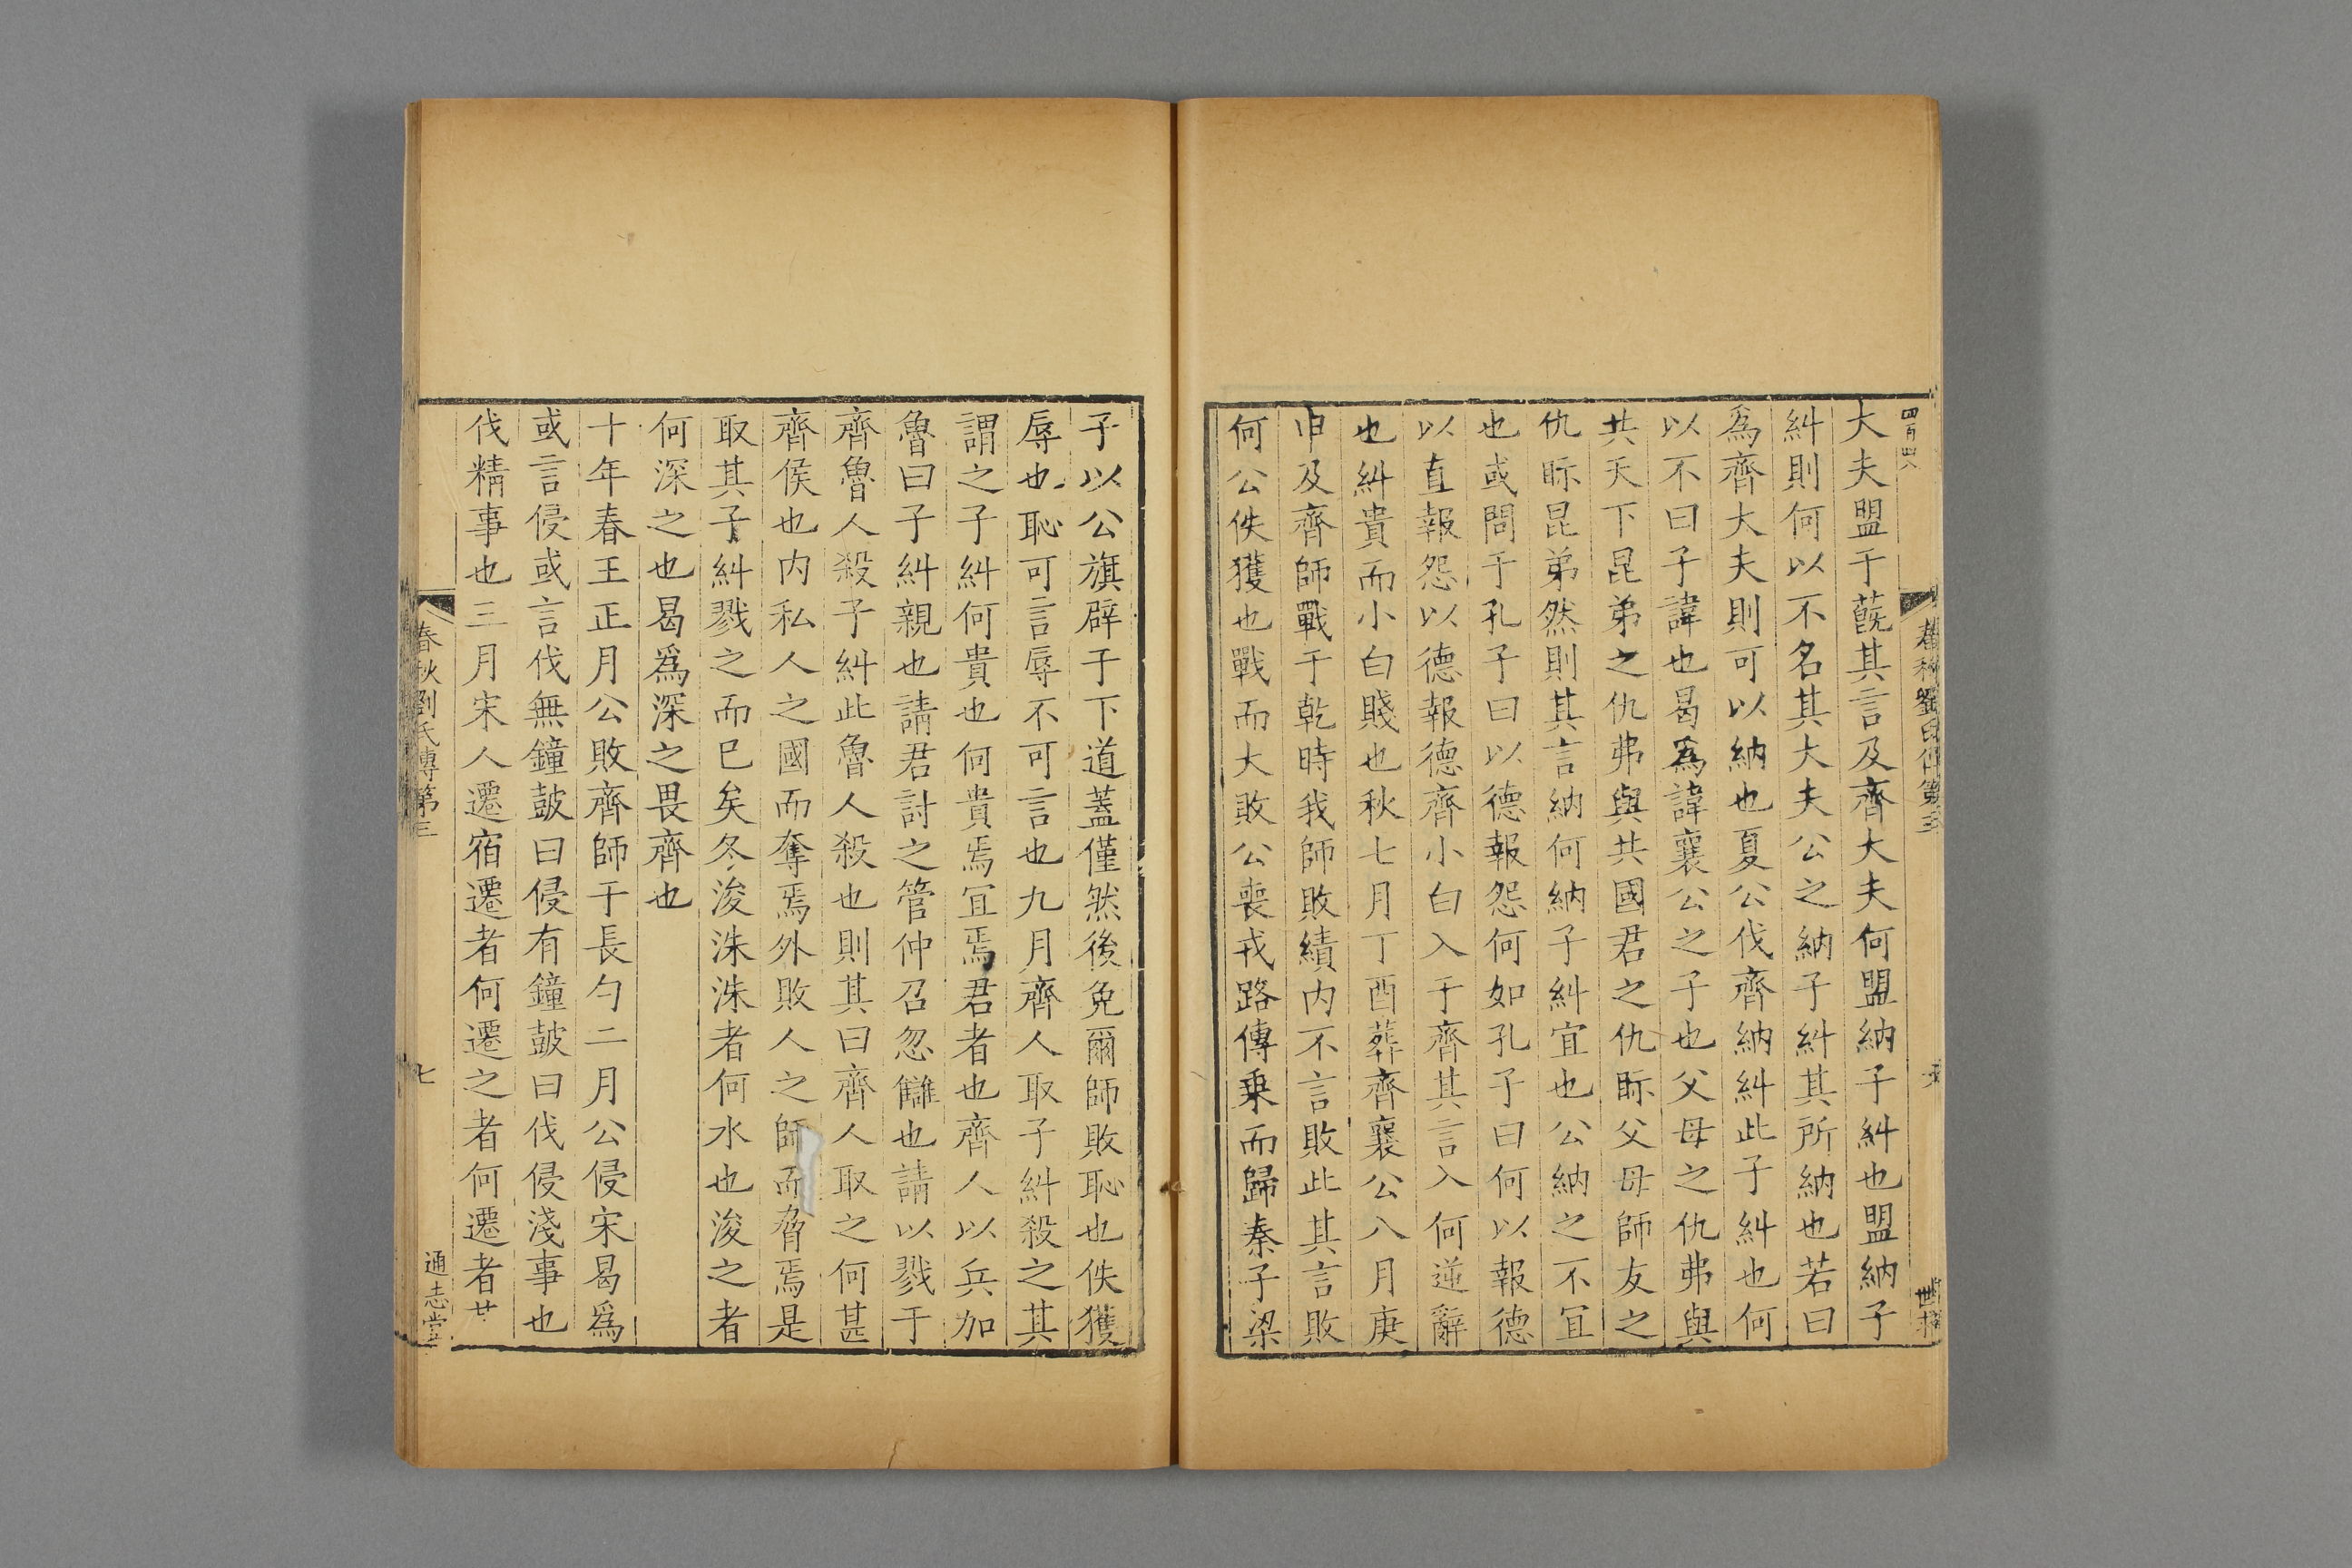 四百四六
大夫盟于蔇其言及齊大夫何盟納子糾也盟納子
糾則何以不名其大夫公之納子糾其所納也若曰
爲齊大夫則可以納也夏公伐齊納糾此子糾也何
以不曰子諱也曷爲諱襄公之子也父母之仇弗與
共天下昆弟之仇弗與共國君之仇眎父母師友之
仇眎昆弟然則其言納何納子糾宜也公納之不宜
也或問于孔子曰以德報怨何如孔子曰何以報德
以直報怨以德報德齊小白入于齊其言入何逆辭
也糾貴而小白賤也秋七月丁酉葬齊襄公八月庚
申及齊師戰于乾時我師敗績内不言敗此其言敗
何公佚獲也戰而大敗公喪戎路傳乗而歸秦子梁
子以公旗辟于下道蓋僅然後免爾師敗恥也佚獲
辱也恥可言辱不可言也九月齊人取子糾殺之其
謂之子糾何貴也何貴焉宜焉君者也齊人以兵加
魯曰子糾親也請君討之管仲召忽讎也請以戮于
齊魯人殺子糾此魯人殺也則其曰齊人取之何甚
齊侯也内私人之國而奪焉外敗人之師而脅焉是
取其子糾戮之而已矣冬浚洙洙者何水也浚之者
何深之也曷爲深之畏齊也
十年春王正月公敗齊師于長勺二月公侵宋曷爲
或言侵或言伐無鐘鼓曰侵有鐘鼓曰伐侵淺事也
伐精事也三月宋人遷宿遷者何遷之者何遷者廿
春秋劉氏傳第三
七
通志堂